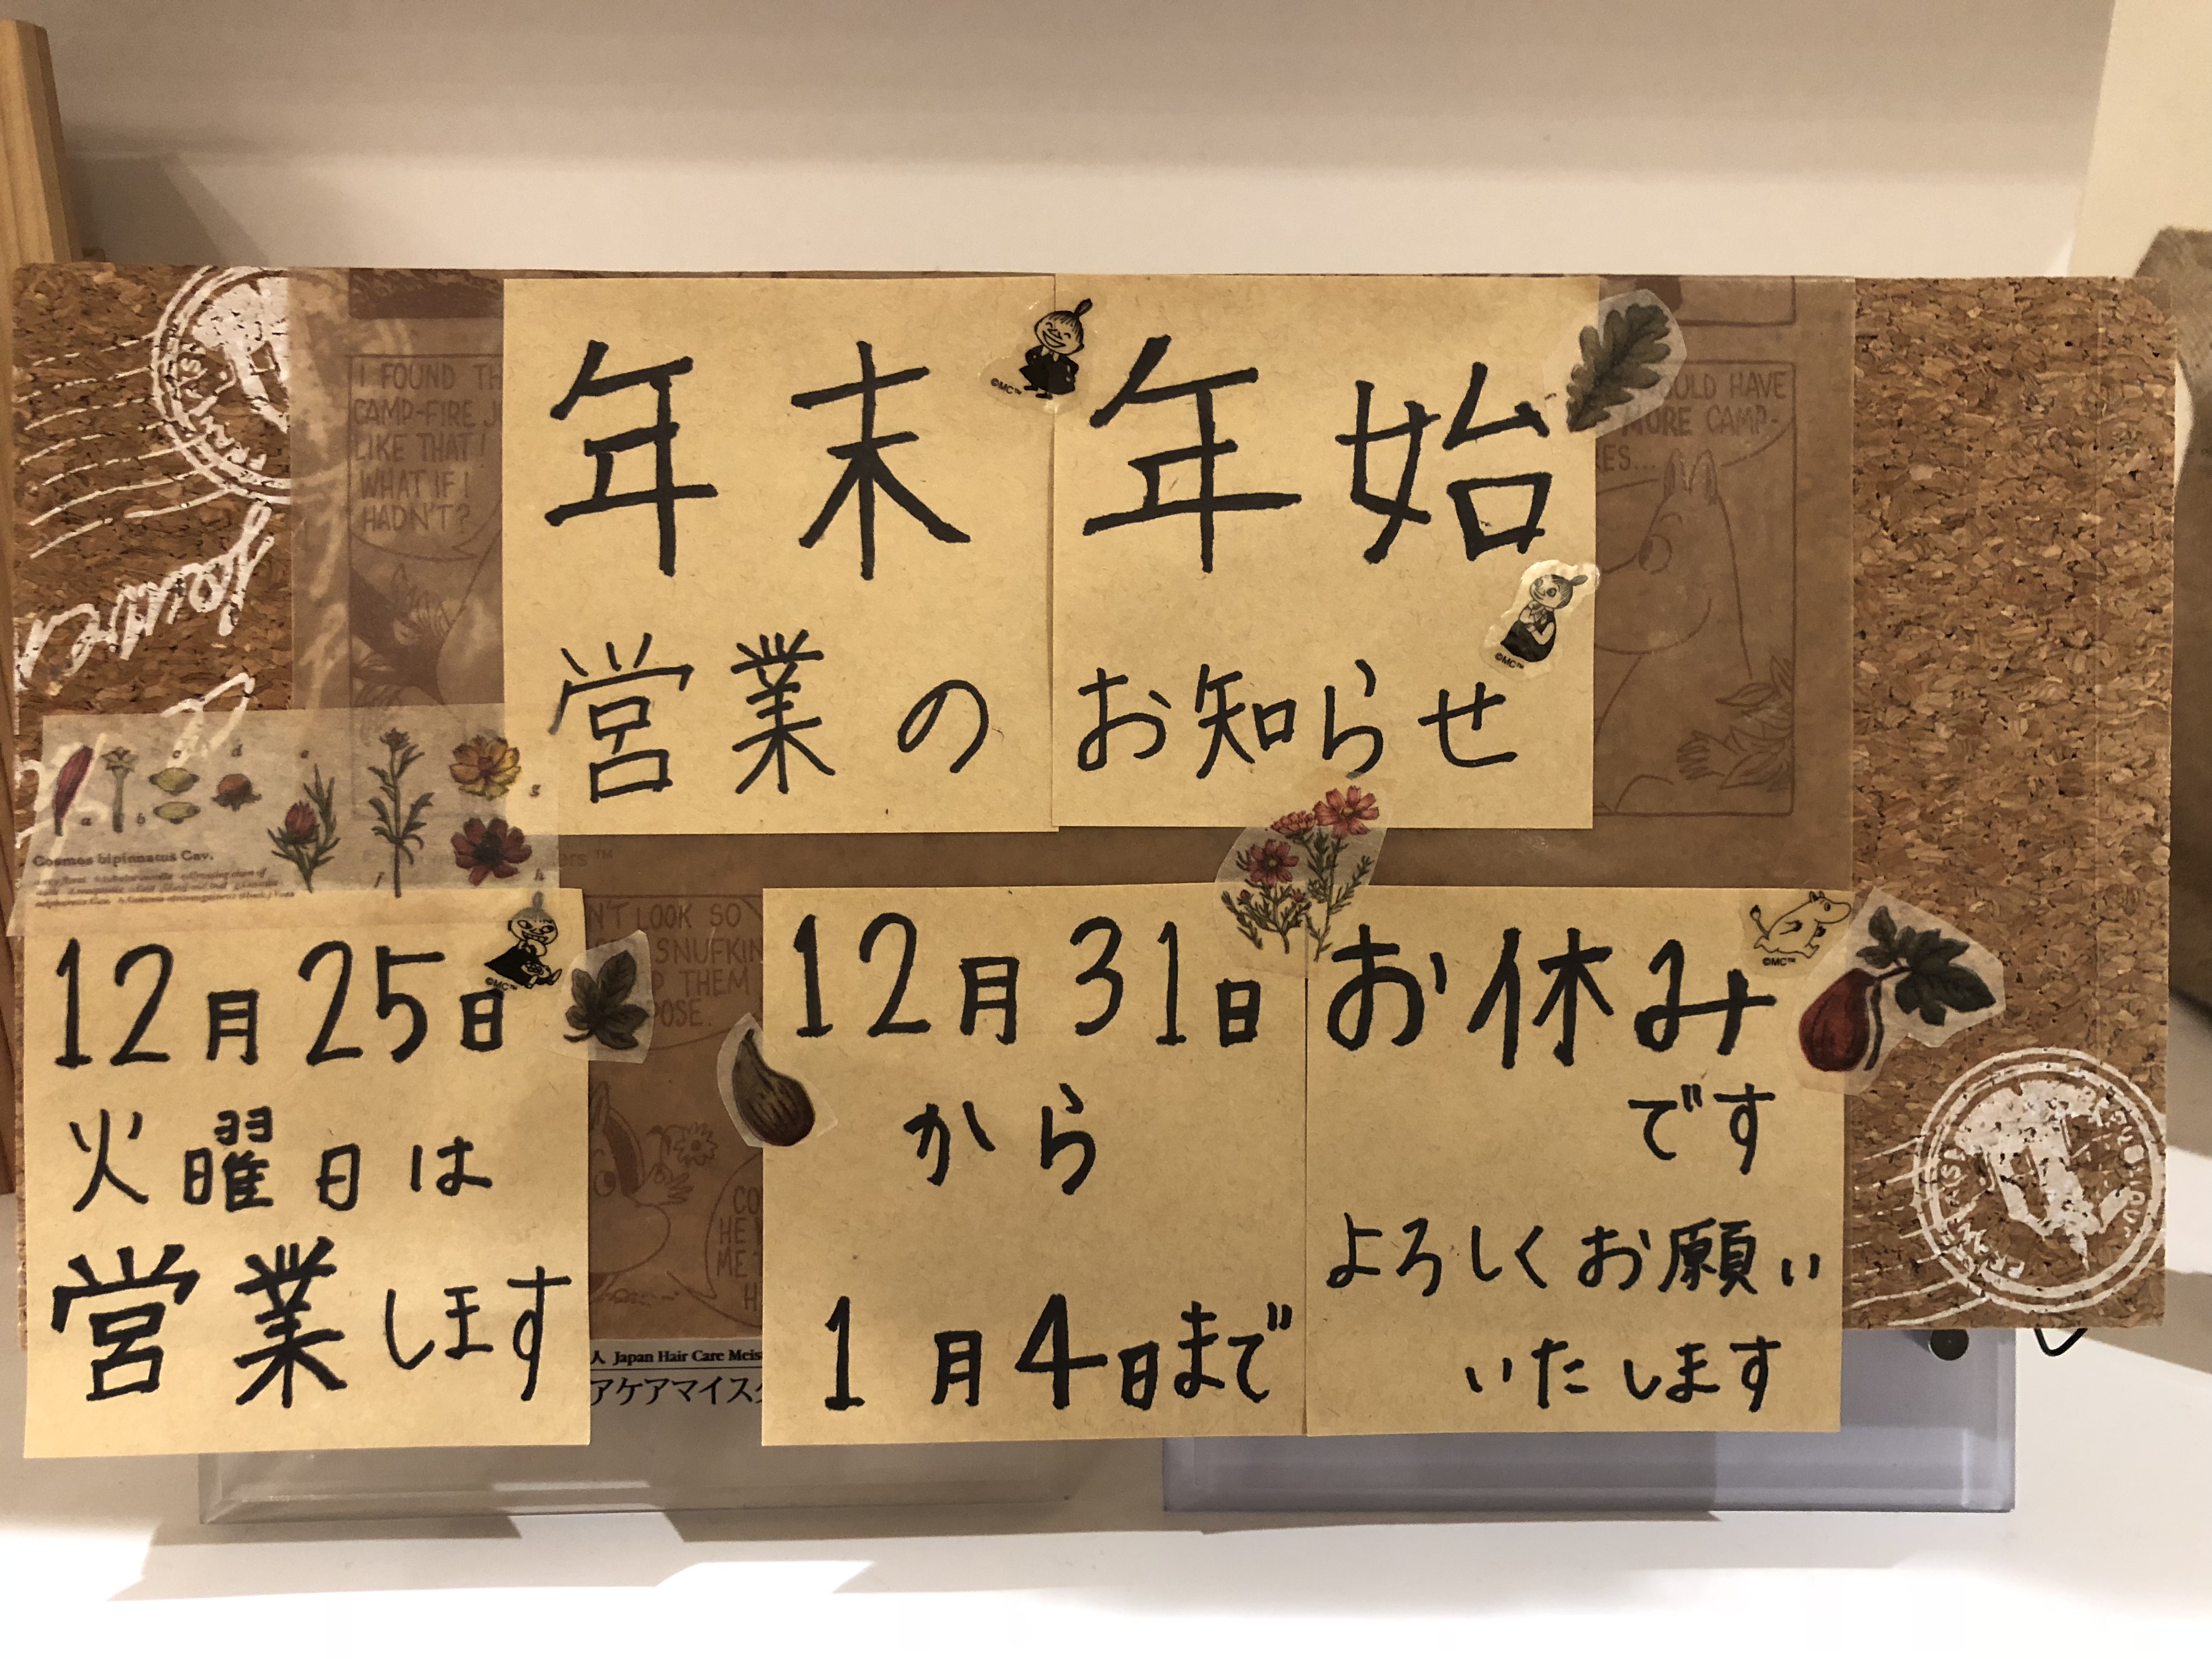 年末年始
営業のお知らせ
12月25日
火曜日は
営業します
12月31日
から
1月4日まで
お休み
です
よろしくお願い
いたします
I FOUND TH
CAMP-FIRE J
LIKE THAT!
WHAT IF I
HADN'T?
OULD HAVE
MORE CAMP-
ES...
N'T LOOK SO
SNUFKIN
P THEM
POSE.
CO
HE
ME
H
Cosmos bipinnatus Cav.
©MC™
©MC™
©MC™
©MC™
人 Japan Hair Care Meis
アケアマイスタ